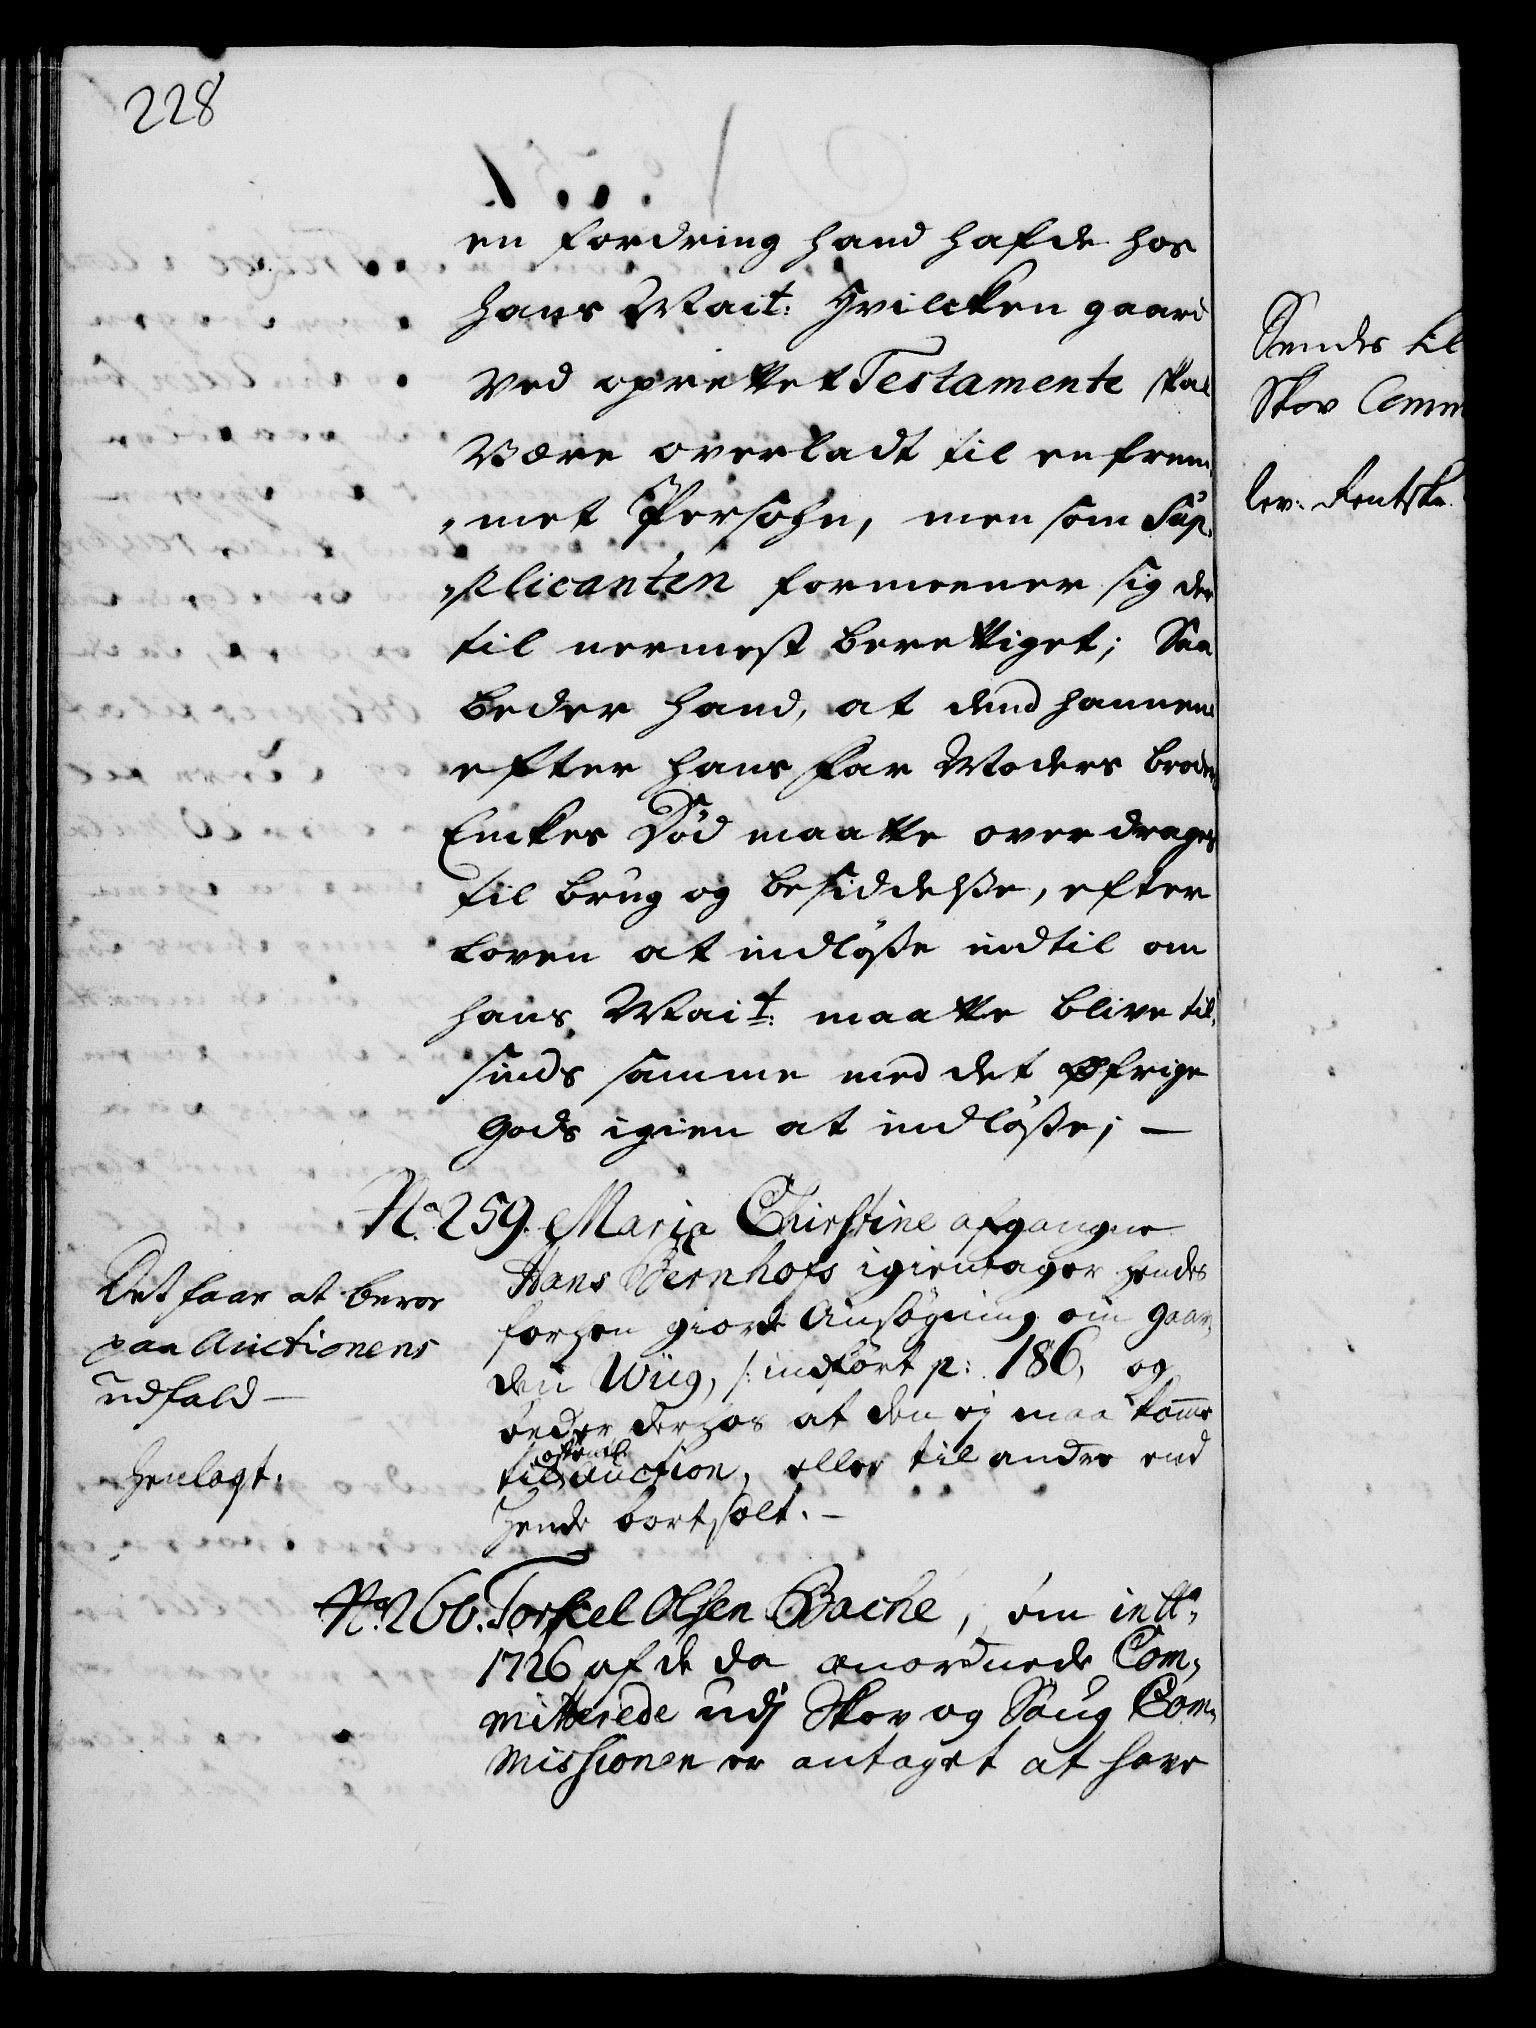 228
en fordring hand hafde hos
hans Mait: Hvilcken gaard
ved oprettet Testamente skal
være overladt til en frem-
„met Persohn, men som Sup-
„plicanten formeener sig der
til nermest berettiget; Saa
beder hand, at dend hannem
efter hans Far Moders broders
Enckes Död maatte overdrages
til brug og besiddelße, efter
loven at indlöße indtil om
hans Mait: maatte blive til
sinds samme med det øfrige
Gods igien at indlöße; —
No. 259. Maria Christine afgangne
Hans Bernhofs igientager hendes
forhen giorde Ansögning om gaar,
den Wiig, /: indfört p: 186, og
beder derhos at den ej maa komme
til offentl: Auction, eller til andre end
Hende bortsolt. —
Det faar at beroe
paa Auctionens
udfald —
Henlagt.
No. 260. Torkel Olsen Bache, om in Ao
1726 af de da anordnede Com,
mitterede udj Skov og Saug Com,
missionen er antaget at have
Sendes til
Skov Comm
lev: Rentsk.